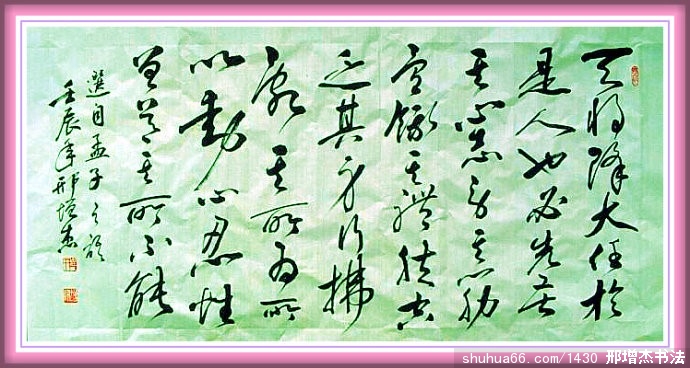 天将降大任於
是人也必先苦
其心志劳其筋
骨餓其體膚空
乏其身行拂
亂其所为所
以動心忍性
曾益其所不能
選自孟子之語
壬辰年邢增杰
shuhua66.com/1430 邢增杰书法